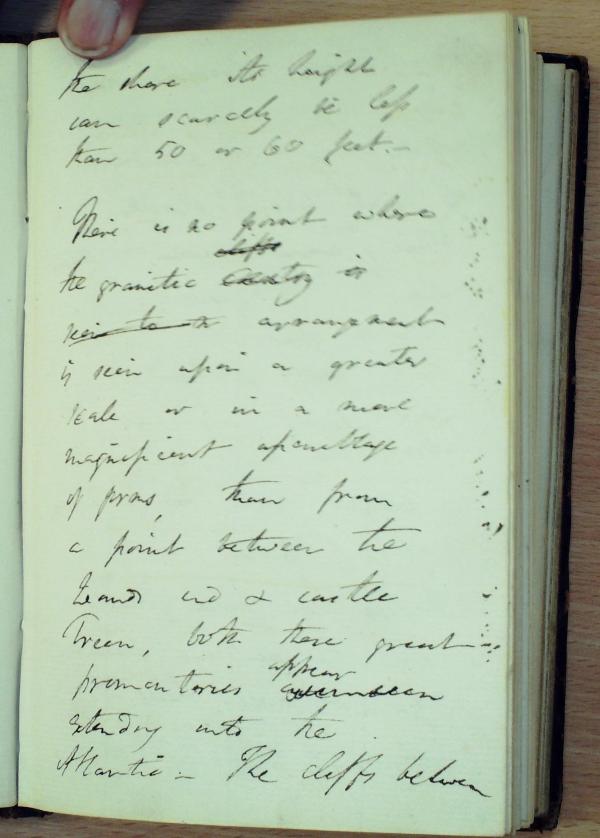 the shore its height
can scarcely be less
than 50 or 60 feet.—
There is no point where
cliffs
the granitic is
seen to arrangement
is seen upon a greater
scale or in a more
magnificent assemblage
of forms, than from
a point between the
Lands end & castle
Treen, both these great
appear
promontories are seen
extending into the
Atlantic – The cliffs between